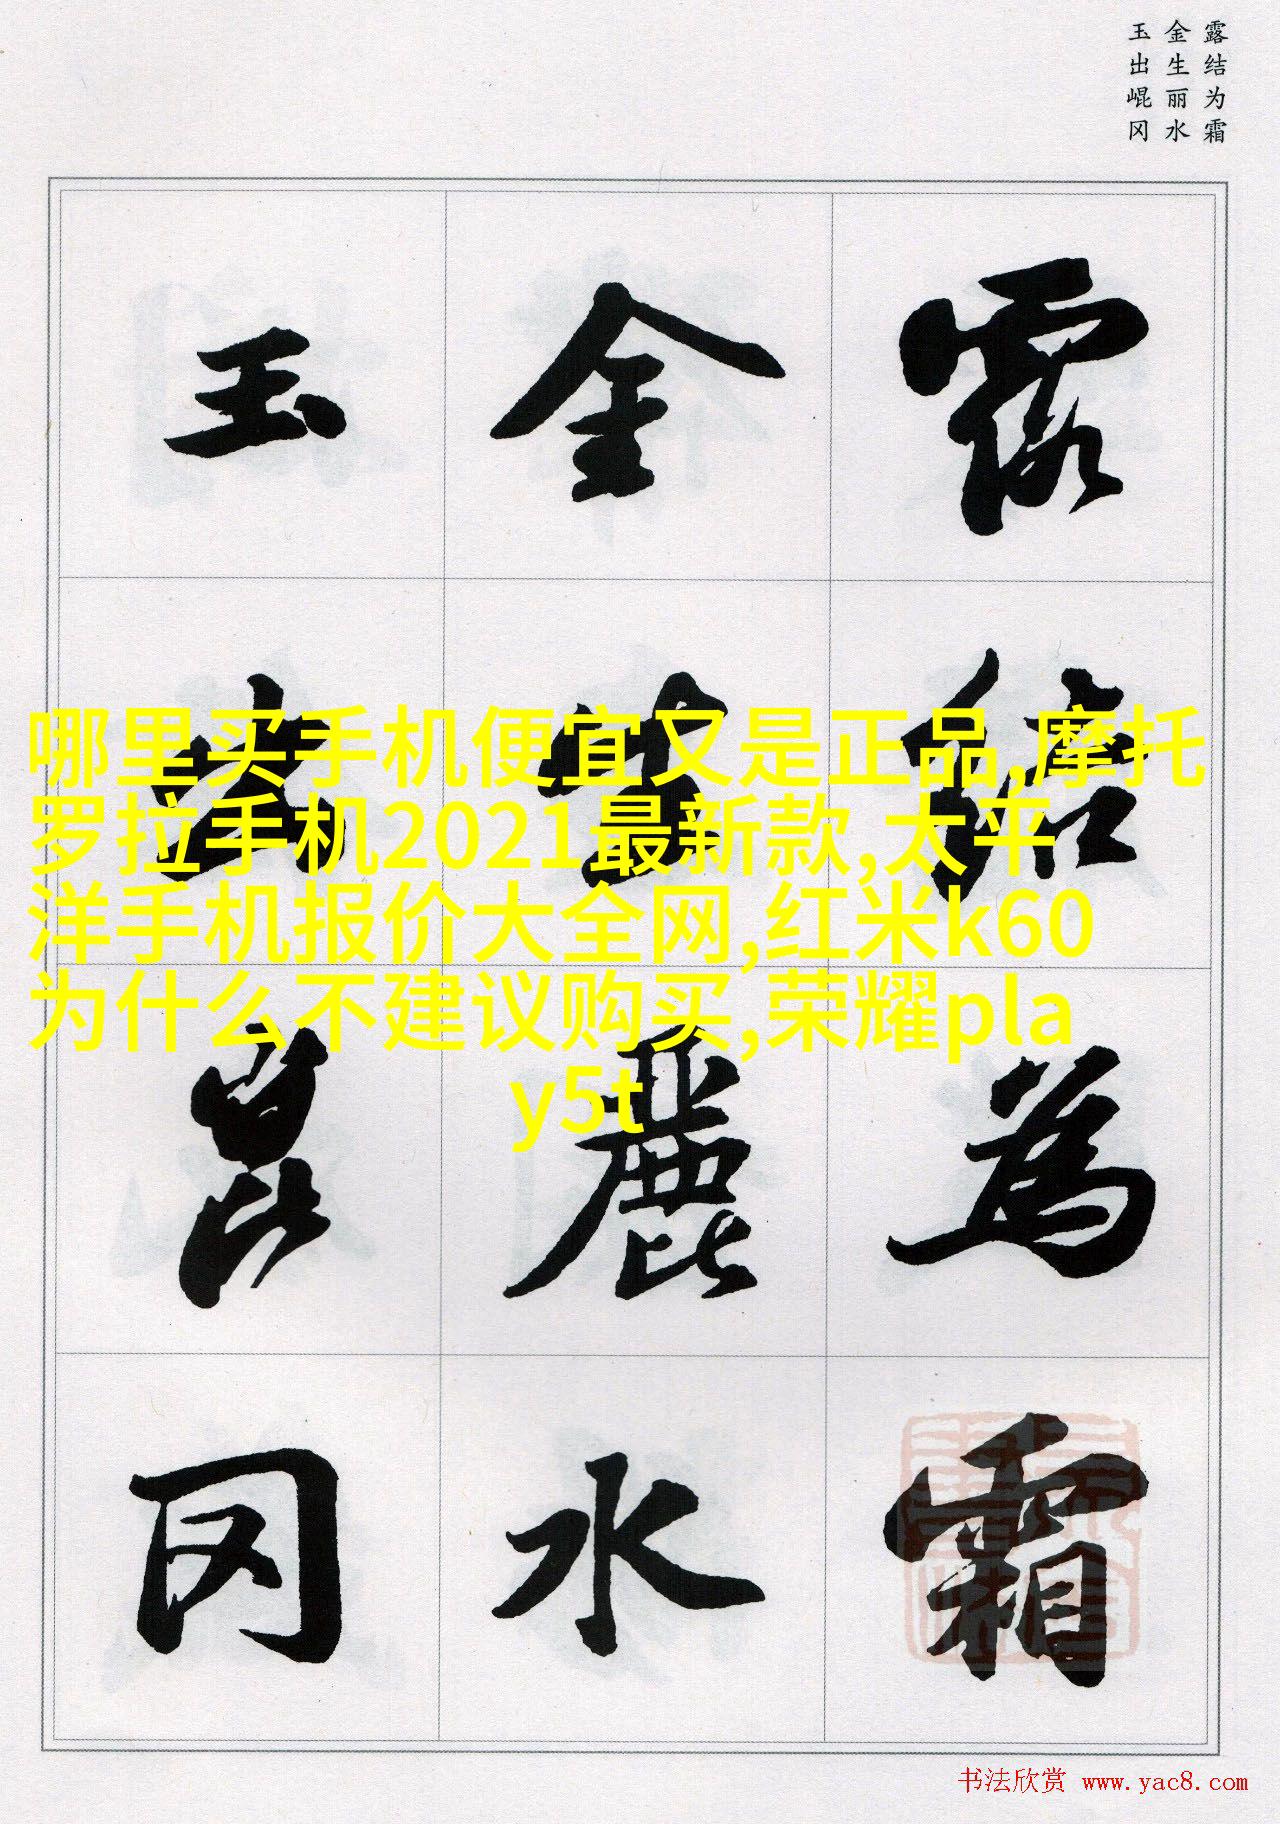 露结为霜
金生丽水
玉出崐冈
露結為霜
金生麗水
玉出崑冈
哪里买手机便宜又是正品,摩托
罗拉手机2021最新款,太平
洋手机报价大全网,红米k60
为什么不建议购买,荣耀pla
y5t
书法欣赏 www.yac8.com